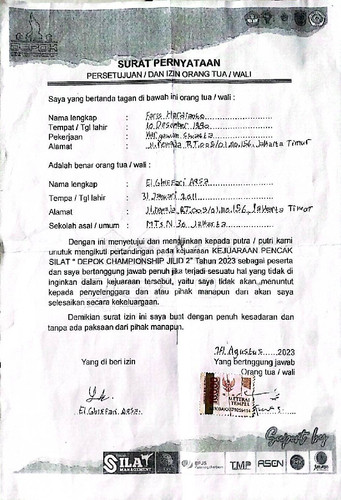 DEPOK
SURAT PERNYATAAN
PERSETUJUAN / DAN IZIN ORANG TUA / WALI
Saya yang bertanda tagan di bawah ini orang tua / wali :
Nama lengkap : Faris
Tempat / Tgl lahir : 10 Desember 1980
Pekerjaan : Karyawan Swasta
Alamat : RT.005/01.NO.156. Jakarta Timur
Adalah benar orang tua / wali :
Nama lengkap : El Ghiffari Arsa
Tempa / Tgl lahir : 31 Januari 2011
Alamat : RT.005/01.NO.156, Jakarta Timur
Sekolah asal / umum : MTs.N 30 Jakarta
Dengan ini menyetujui dan mengijinkan kepada putra / putri kami
unutuk mengikuti pertandingan pada kejuaraan KEJUARAAN PENCAK
SILAT " DEPOK CHAMPIONSHIP JILID 2" Tahun 2023 sebagai peserta
dan saya bertanggung jawab penuh jika terjadi sesuatu hal yang tidak di
inginkan dalam kejuaraan tersebut, yaitu saya tidak akan menuntut
kepada penyelenggara dan atau pihak manapun dan akan saya
selesaikan secara kekeluargaan.
Demikian surat izin ini saya buat dengan penuh kesadaran dan
tanpa ada paksaan dari pihak manapun.
Agustus 2023
Yang di beri izin
Yang bertnggung jawab
Orang tua / wali
METERAI
TEMPEL
El Ghiffari Arsa.
Suports by
SILAT
MANAGEMENT
BPJS
TMP
ASGN